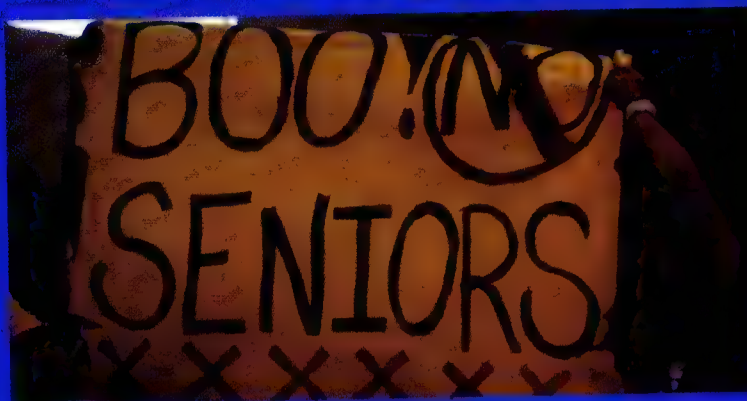 BOO! NO
SENIORS
XXXXXX